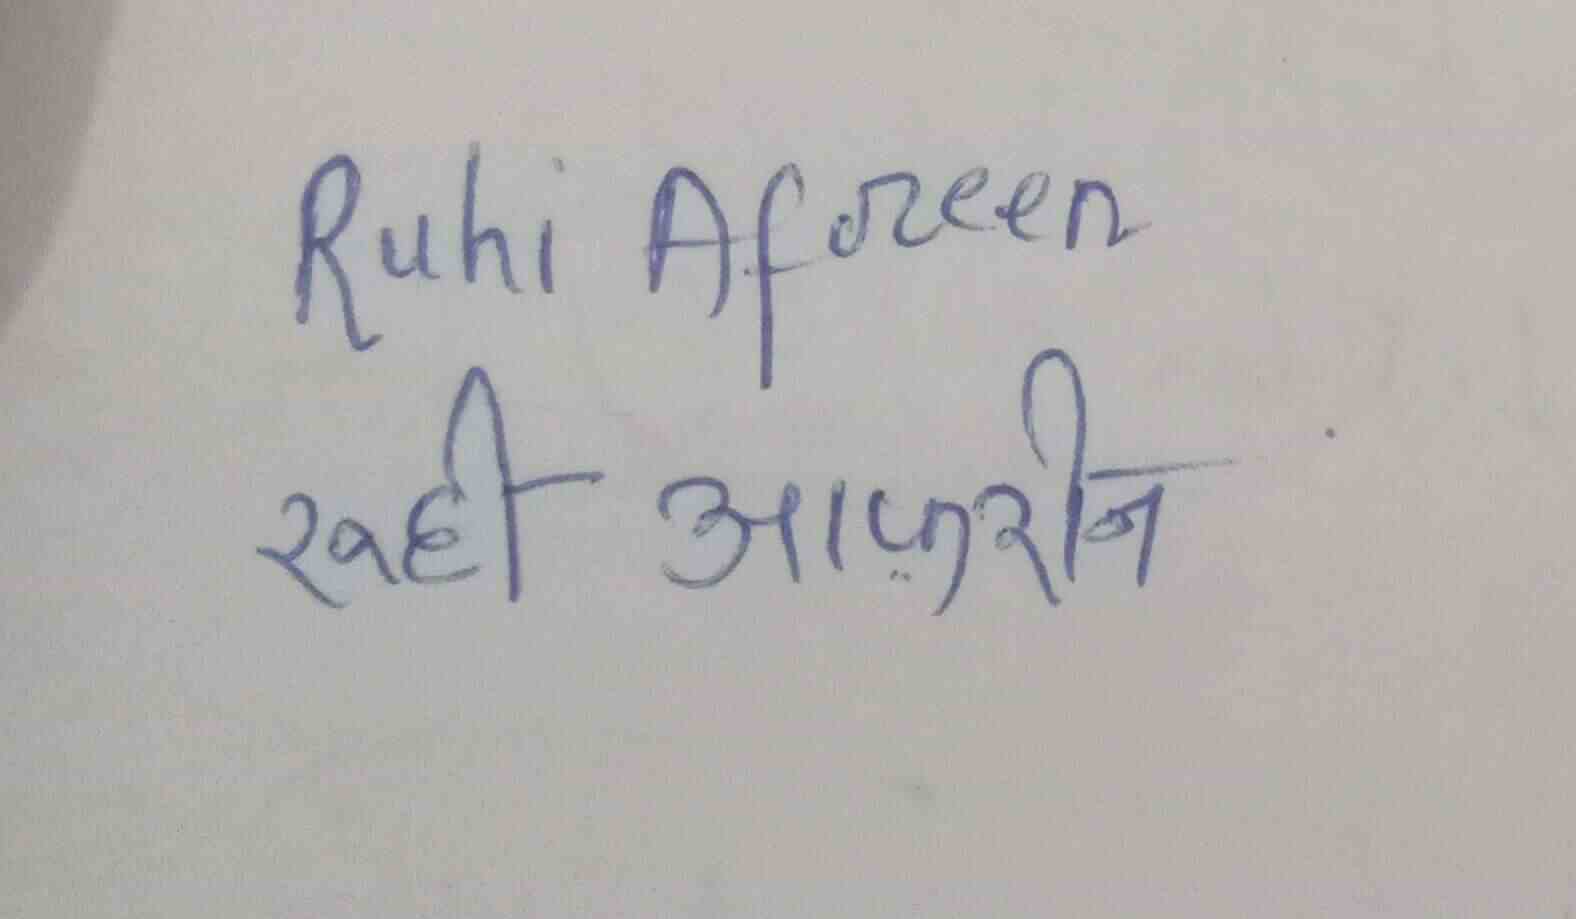 Ruhi Afreen
रूही आफ़रीन